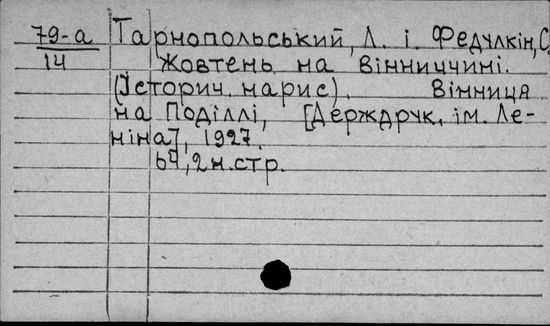 79-а Тарнопольський, Л. і Федулкін, С
14 Жовтень на Вінниччині.
(Історич. нарис). Вінниця
на Поділлі, [Держдрук. ім. Ле-
ніна], 1927.
67, 2 н. стр.